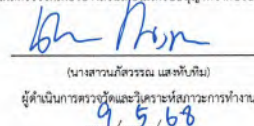 (นางสาวนภัสวรรณ แสงทับทิม)
ผู้ดำเนินการตรวจวัดและวิเคราะห์สภาวะการทำงาน
9, 5, 68